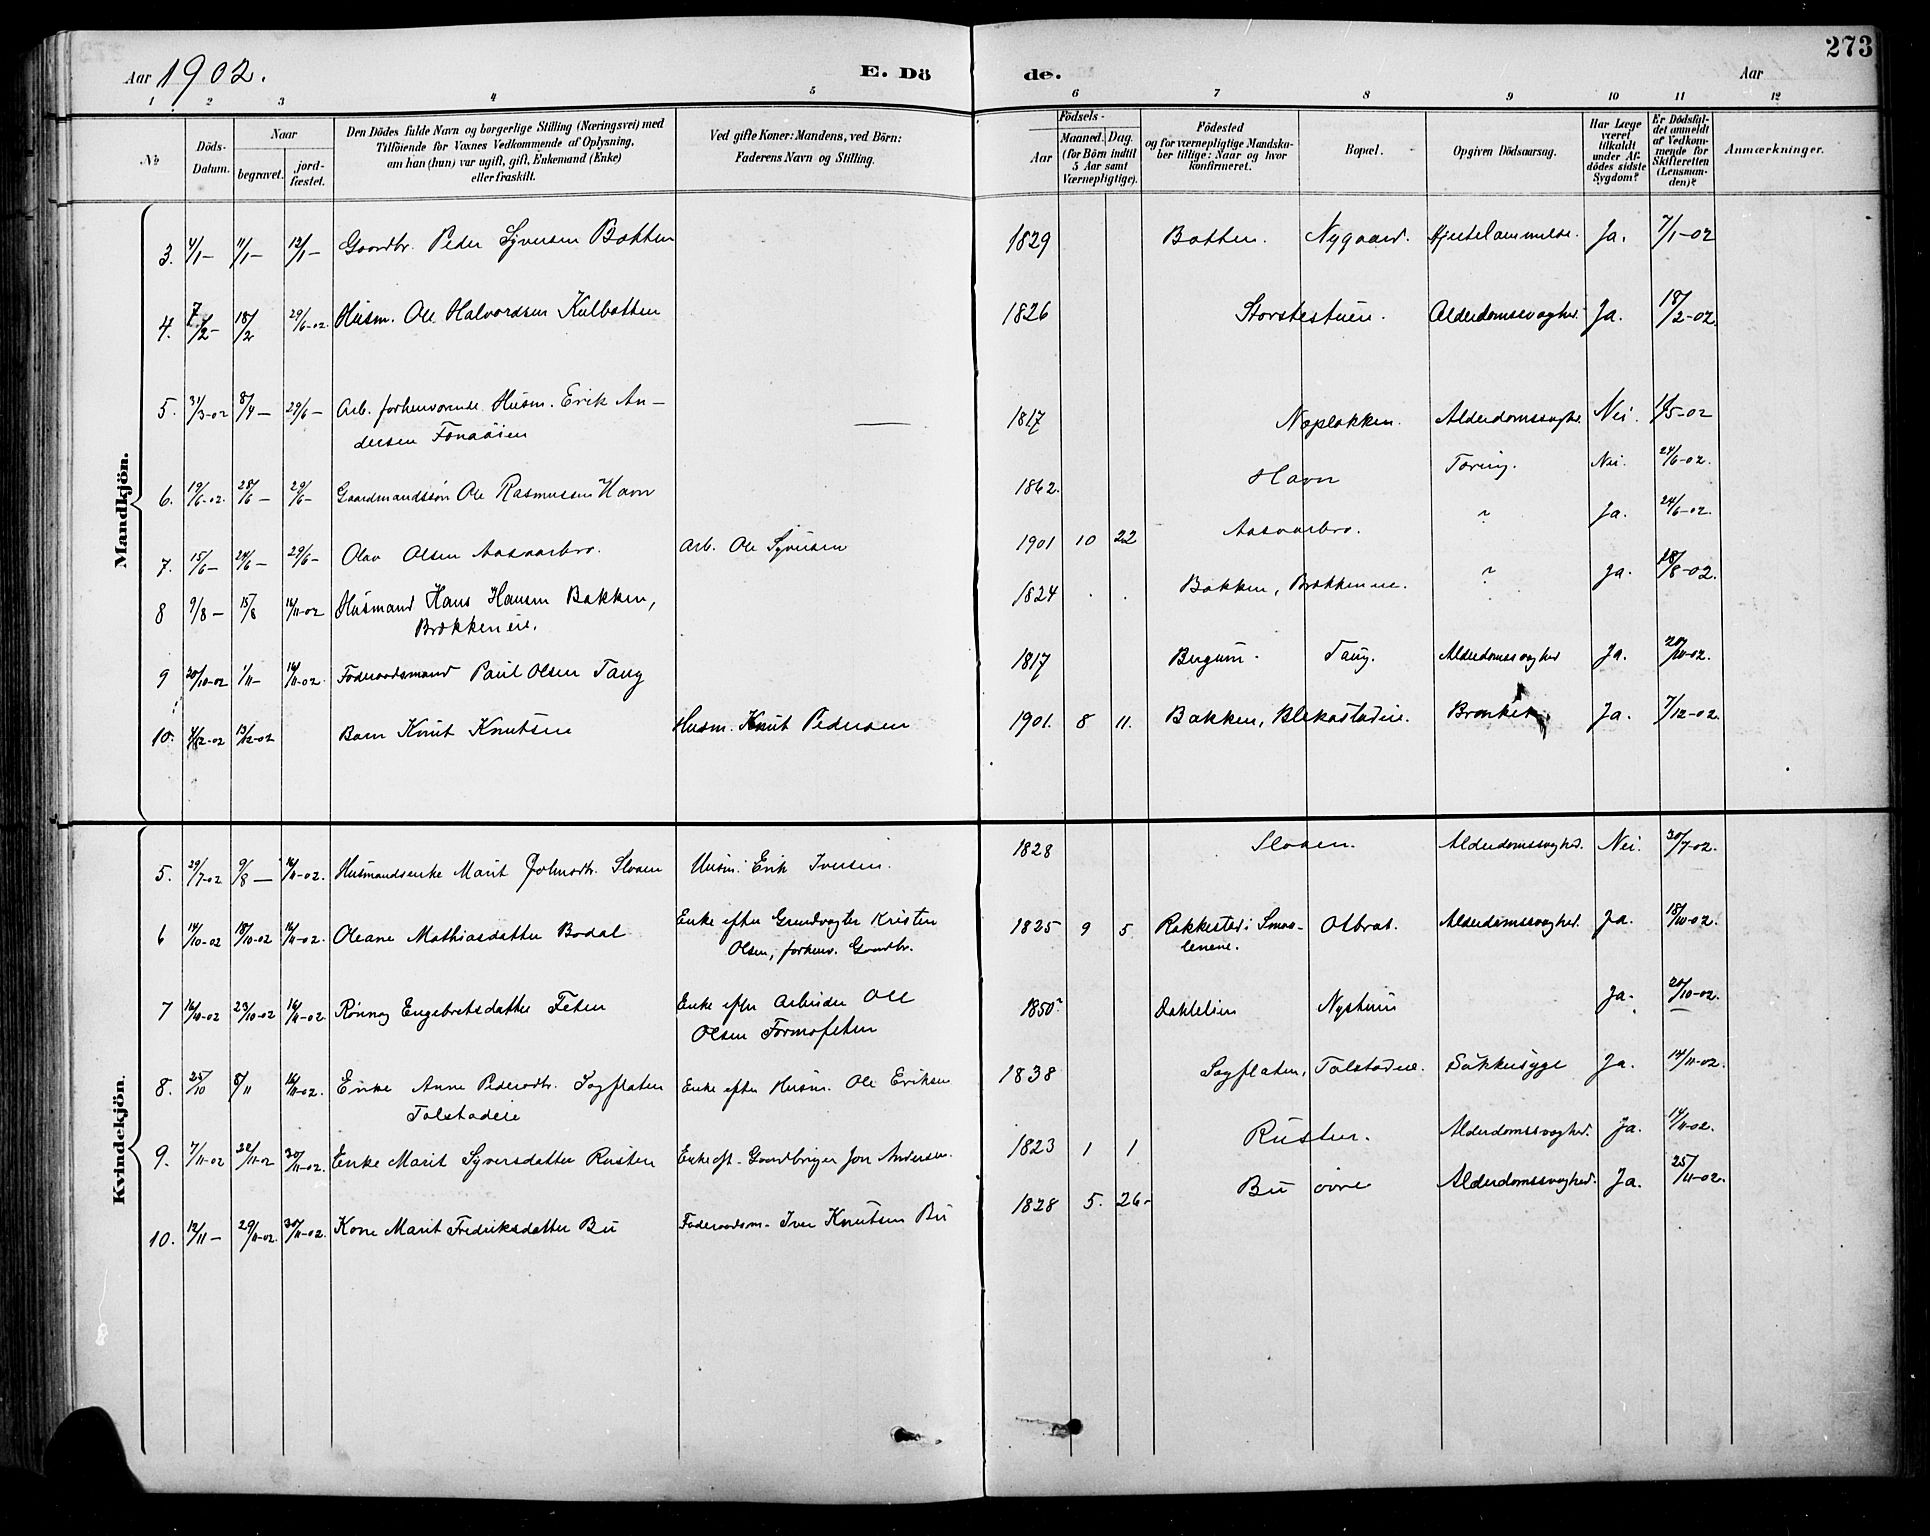 273
Aar 1902. E. Dö de. Aar
1 2 3 4 5 6 7 8 9 10 11 12
No
Döds-Datum.
Naar
begravet.
jordfæstet.
Den Dödes fulde Navn og borgerlige Stilling (Næringsvei) med
Tilföiende for Voxnes Vedkommende af Oplysning,
om han (hun) var ugift, gift, Enkemand (Enke)
eller fraskilt.
Ved gifte Koner: Mandens, ved Börn:
Faderens Navn og Stilling.
Födsels-
Aar
Maaned. Dag.
(for Börn indtil
5 Aar samt
Værnepligtige).
Födested
og for værnepligtige Mandskaber tillige: Naar og hvor
konfirmeret.
Bopæl.
Opgiven Dödsaarsag.
Har Læge
været
tilkaldt
under Afdödes sidste
Sygdom?
Er Dödsfaldet anmeldt
af Vedkommende for
Skifteretten
(Lensmanden)?
Anmærkninger.
Mandkjön.
3. 4/1- 11/1- 12/1- Gaardbr. Peder Syversen Bakken 1829 Bakken. Nygaard. Ja. 7/1-02
4. 7/2- 18/2 29/6-02. Husm. Ole Halvordsen Kulbakken 1826 Storstestuen. Alderdomssvaghed. Ja. 18/2-02.
5. 31/3-02 8/4- 29/6- Arb. forhenværende Husm. Erik An-
dersen 1817 Alderdomssvaghed. Nei. 1/5-02
6. 19/6-02. 28/6- 29/6- Gaardmandssøn Ole Rasmussen Havn 1862. Havn Tæring. Nei. 24/6-02.
7. 15/6- 24/6- 29/6- Olav Olsen Aasaarbro. Arb. Ole Syversen 1901 10 22 Aasaarbro. ? Ja. 24/6-02.
8 9/8- 15/8 16/11-02 Husmand Hans Hansen Bakken,
Brækkeneie. 1824 Bakken, Brækkeneie. ? Ja. 18/8-02.
9 20/10-02 1/11- 16/11-02. Føderaadsmand Paul Olsen Taug 1817 Taug. Alderdomssvaghed Ja. 20/10-02.
10. 4/12-02 13/12-02 Barn Knut Knutsen Husm. Knut Pedersen 1901. 8 11. Bakken, Blekastadeie. Ja. 7/12-02.
Kvindekjön.
5. 29/7-02 9/8- 16/11-02. Husmandsenke Marit Johnsdtr. Slaaen Husm. Erik Iversen. 1828 Slaaen. Alderdomssvaghed. Nei. 30/7-02.
6 14/10-02 18/10-02 16/11-02. Oleane Mathiasdatter Bødal Enke efter Grundvagter Kristen
Olsen, forhenv. Gaardbr. 1825 9 5 Rakkestad i Smaa-
lenene. Alderdomssvaghed. Ja. 18/10-02.
7 16/10-02 23/10-02 16/11-02. Rønnog Engebretsdatter Feten Enke efter Arbeider Ole
Olsen Formofeten 1850? Dahleien Nystuen Ja. 20/10-02.
8. 25/10 8/11 16/11-02. Enke Anne Pedersdtr. Sagflaten
Tolstadeie Enke efter Husm. Ole Eriksen 1838 Sagflaten, Tolstadeie. Sukkersyge Ja. 14/11-02.
9. 7/11-02 22/11-02 30/11-02. Enke Marit Syversdatter Rusten Enke eft. Gaardbruger Jon Andersen. 1823 1 1 Rusten. Alderdomssvaghed. Ja. 14/11-02.
10. 12/11- 29/11-02. 30/11-02. Kone Marit Fredriksdatter Bu Føderaadsm. Iver Knutsen Bu 1828 5. 26- Bu øvre Alderdomssvaghed. Ja. 25/11-02.